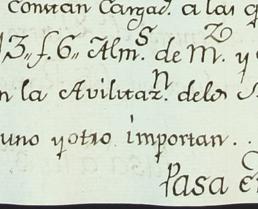 Constan Cargad.ˢ a las q
13„ f. 6„ Alm.ˢ de m.ᶻ y
n la Avilitaz.ⁿ de los
uno y otro importan . .
Pasa